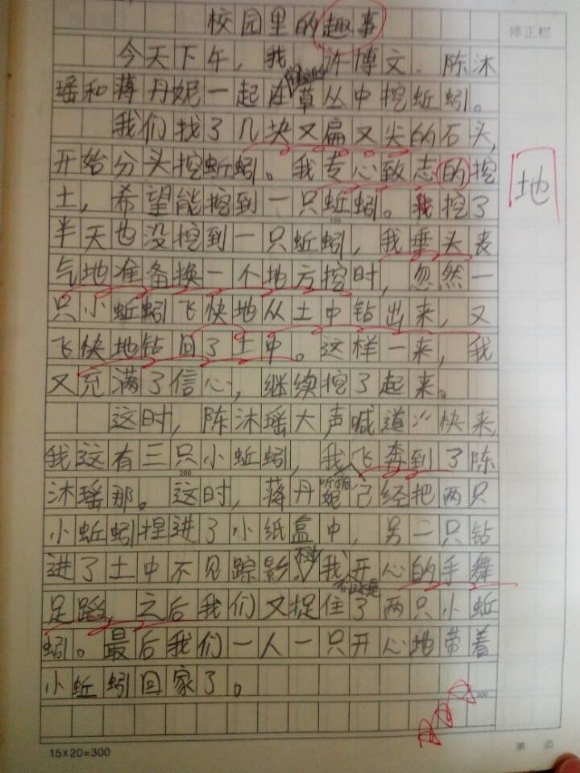 校园里的趣事
修正栏
今天下午，我、许博文、陈沐
瑶和蒋丹妮一起在草丛中挖蚯蚓。
我们找了几块又扁又尖的石头，
开始分头挖蚯蚓。我专心致志的挖
地
土，希望能挖到一只蚯蚓。我挖了
100
半天也没挖到一只蚯蚓，我垂头丧
气地准备换一个地方挖时，忽然一
只小蚯蚓飞快地从土中钻出来，又
飞快地钻回了土中。这样一来，我
又充满了信心，继续挖了起来。
这时，陈沐瑶大声喊道："快来，
我这有三只小蚯蚓，我飞奔到了陈
200
沐瑶那。这时，蒋丹妮已经把两只
小蚯蚓捏进了小纸盒中，另一只钻
进了土中不见踪影，我开心的手舞
足蹈，之后我们又捉住了两只小蚯
蚓。最后我们一人一只开心地带着
小蚯蚓回家了。
300
15×20=300
第 页